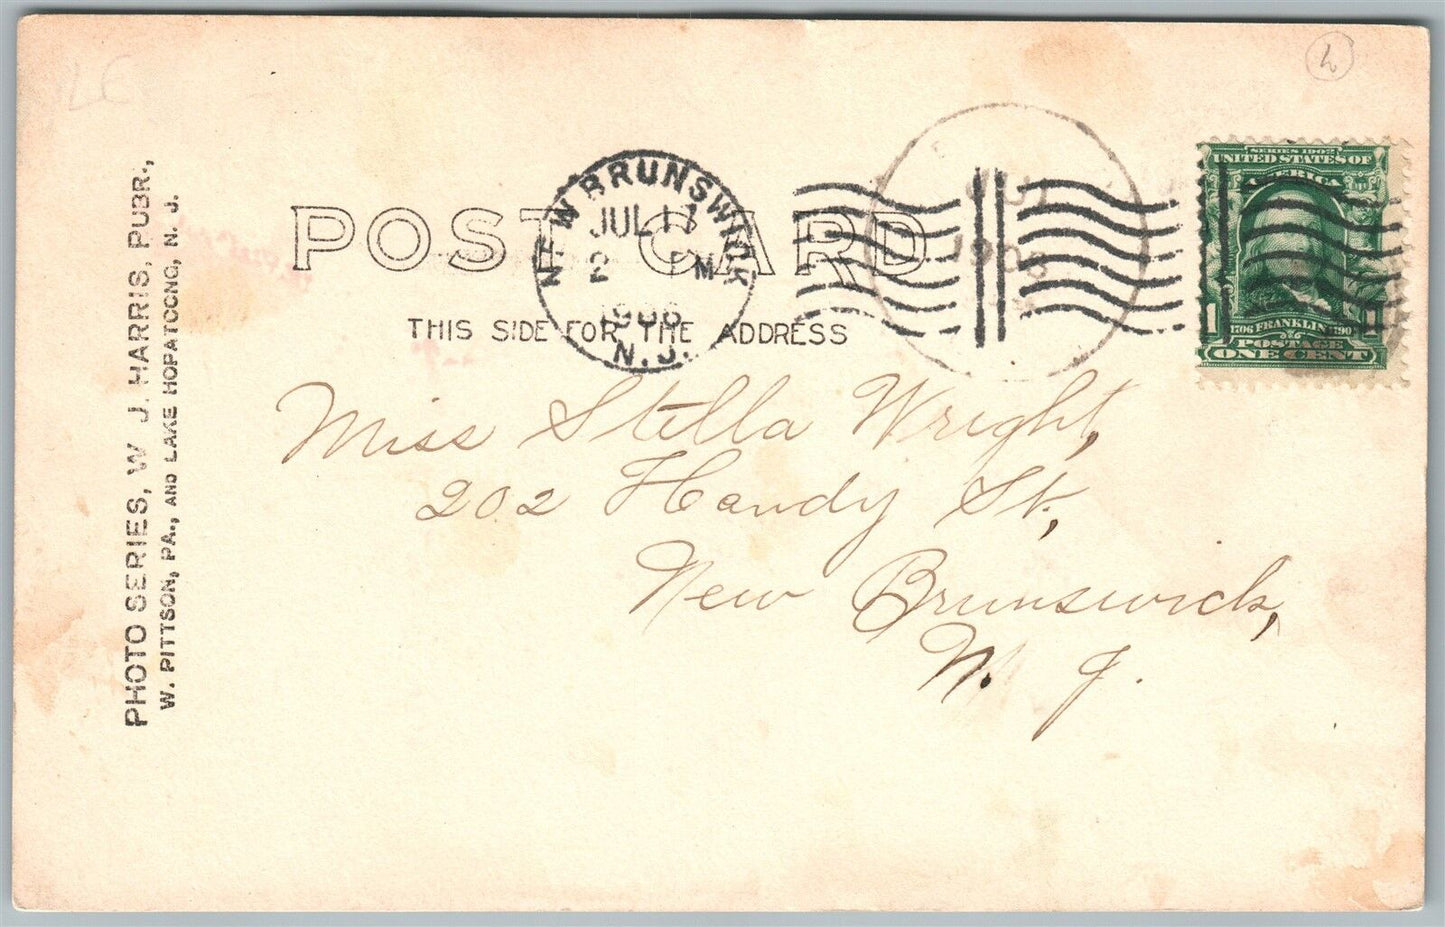 POST CARD
THIS SIDE FOR THE ADDRESS
NEW BRUNSWICK
JUL 17
2 PM
1906
N.J.
JUL
1906
SERIES 1902
UNITED STATES OF
AMERICA
1706 FRANKLIN 1790
1 1
POSTAGE
ONE CENT
Miss Stella Wright,
202 Handy St,
New Brunswick,
N. J.
PHOTO SERIES, W. J. HARRIS, PUBR.,
W. PITTSON, PA., AND LAKE HOPATCONG, N. J.